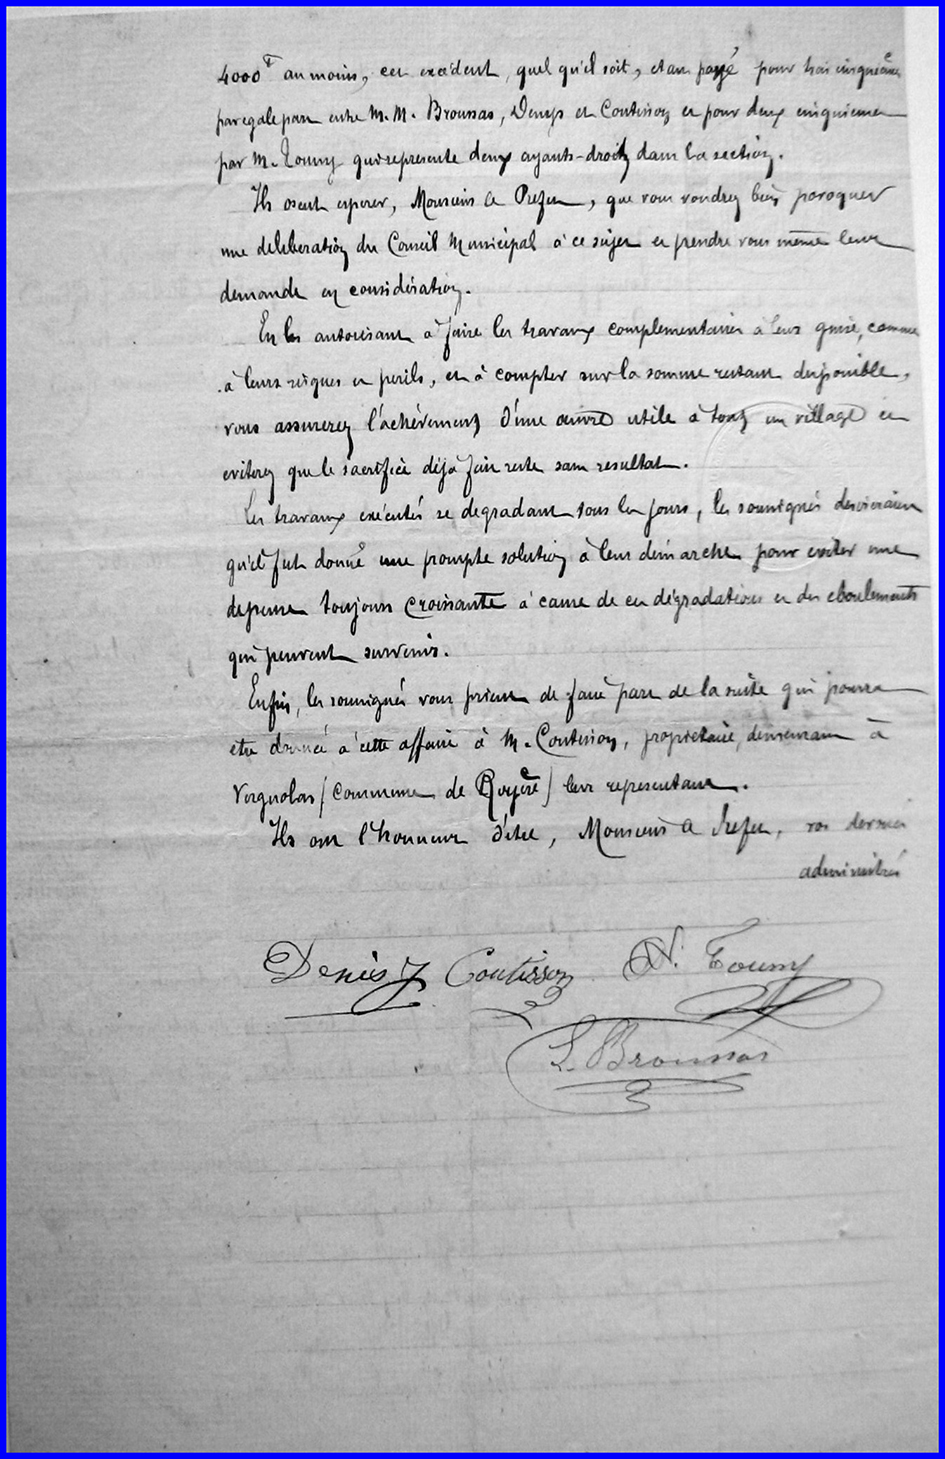 4000f au moins, cet excédent, quel qu'il soit, étant payé pour trois cinquièmes
par egale part entre M. M. Broussas, Denys et Coutisson et pour deux cinquiemes
par M. Toumy qui represente deux ayants-droits dans la section.
Ils osent esperer, Monsieur le Prefet, que vous voudrez bien provoquer
une deliberation du Conseil Municipal à ce sujet et prendre vous même leur
demande en considération.
En les autorisant à faire les travaux complementaires à leur gré, comme
à leurs risques et perils, et à compter sur la somme restant disponible,
vous assurerez l'achèvement d'une œuvre utile à tout un village et
eviterez que le sacrifice déjà fait reste sans resultat.
Les travaux exécutés se degradant tous les jours, les soussignés desireraient
qu'il fut donné une prompte solution à leur démarche pour eviter une
depense toujours croissante à cause de ces dégradations et des eboulements
qui peuvent survenir.
Enfin, les soussignés vous prient de faire part de la suite qui pourra
etre donnée à cette affaire à M. Coutisson, propriétaire, demeurant à
Vergnolas (commune de Royère) leur representant.
Ils ont l'honneur d'être, Monsieur le Prefet, vos devoués
administrés
Denis J Coutisson N. Toumy
L. Broussas